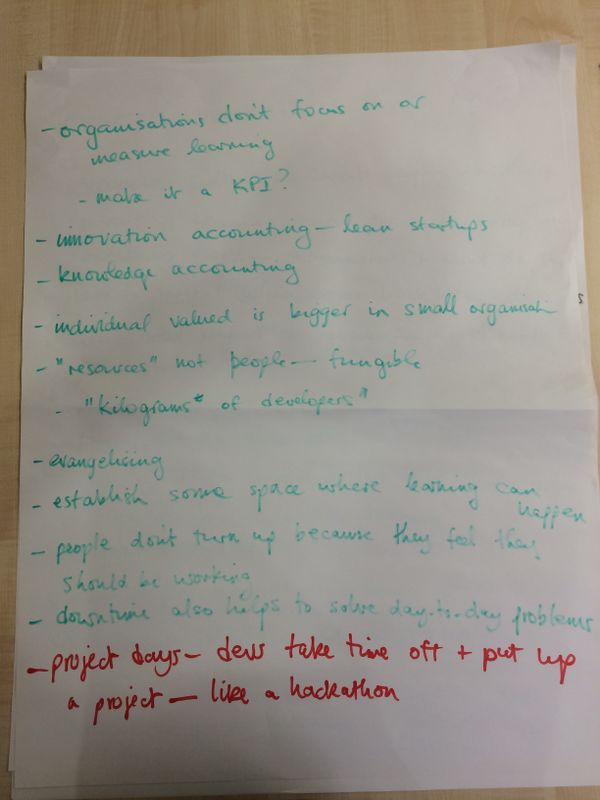 - organisations don't focus on or
measure learning
- make it a KPI?
- innovation accounting - lean startups
- knowledge accounting
- individual valued is bigger in small organisati
- "resources" not people - fungible
- "kilograms" of developers"
- evangelising
- establish some space where learning can
happen
- people don't turn up because they feel they
should be working
- downtime also helps to solve day-to-day problems
- project days - devs take time off + put up
a project - like a hackathon